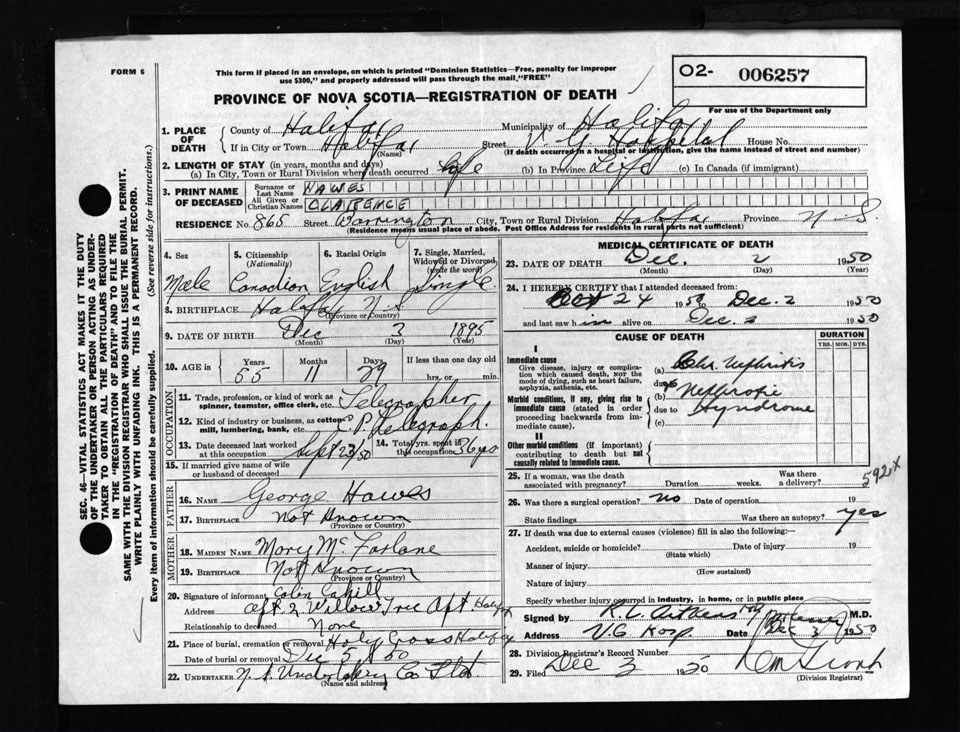 FORM 6
This form if placed in an envelope, on which is printed "Dominion Statistics—Free, penalty for improper
use $300," and properly addressed will pass through the mail "FREE"
O2- 006257
PROVINCE OF NOVA SCOTIA—REGISTRATION OF DEATH
For use of the Department only
1. PLACE OF DEATH
County of Halifax Municipality of Halifax
If in City or Town Halifax Street V. G Hospital House No.
(Name) (If death occurred in a hospital or institution, give the name instead of street and number)
2. LENGTH OF STAY (in years, months and days)
(a) In City, Town or Rural Division where death occurred life (b) In Province Life (c) In Canada (if immigrant)
3. PRINT NAME OF DECEASED
Surname or Last Name HAWES
All Given or Christian Names CLARENCE
RESIDENCE No. 865 Street Barrington City, Town or Rural Division Halifax Province N. S.
(Residence means usual place of abode. Post Office Address for residents in rural parts not sufficient)
4. Sex Male
5. Citizenship (Nationality) Canadian
6. Racial Origin English
7. Single, Married, Widowed or Divorced (write the word) Single.
8. BIRTHPLACE Halifax N. S
(Province or Country)
9. DATE OF BIRTH Dec 3 1895
(Month) (Day) (Year)
10. AGE in Years 55 Months 11 Days 29 If less than one day old
hrs. or min.
OCCUPATION
11. Trade, profession, or kind of work as spinner, teamster, office clerk, etc. Telegrapher
12. Kind of industry or business, as cotton mill, lumbering, bank, etc. C. P. Telegraph.
13. Date deceased last worked at this occupation Sept 23/50
14. Total yrs. spent in this occupation 36 yrs
15. If married give name of wife or husband of deceased
FATHER
16. NAME George Hawes
17. BIRTHPLACE Not Known
(Province or Country)
MOTHER
18. MAIDEN NAME Mary McFarlane
19. BIRTHPLACE Not Known
(Province or Country)
20. Signature of informant Colin Cahill
Address apt 2 Willow Tree Apt Halifax
Relationship to deceased None
21. Place of burial, cremation or removal Holy Cross Halifax
Date of burial or removal Dec 5 50
22. UNDERTAKER N. S Undertaking Co Ltd.
(Name and address)
MEDICAL CERTIFICATE OF DEATH
23. DATE OF DEATH Dec. 2 1950
(Month) (Day) (Year)
24. I HEREBY CERTIFY that I attended deceased from:
Oct 24 1950 to Dec. 2 1950
and last saw h im alive on Dec. 2 1950
CAUSE OF DEATH
DURATION
YRS. MOS. DYS.
I
Immediate cause
Give disease, injury or complication which caused death, not the mode of dying, such as heart failure, asphyxia, asthenia, etc.
(a) Chr. Nephritis
due to
Morbid conditions, if any, giving rise to immediate cause (stated in order proceeding backwards from immediate cause).
(b) Nephrotic
due to Syndrome
(c)
II
Other morbid conditions (if important) contributing to death but not causally related to immediate cause.
25. If a woman, was the death associated with pregnancy? Duration weeks. Was there a delivery?
592 X
26. Was there a surgical operation? no Date of operation. 19
State findings Was there an autopsy? yes
27. If death was due to external causes (violence) fill in also the following:
Accident, suicide or homicide? Date of injury 19
(State which)
Manner of injury
(How sustained)
Nature of injury
Specify whether injury occurred in industry, in home, or in public place
Signed by R. L. Aikens M.D.
Address V.G. Hosp. Date Dec 3 1950
28. Division Registrar's Record Number
29. Filed Dec 3 1950
(Division Registrar)
SEC. 46—VITAL STATISTICS ACT MAKES IT THE DUTY
OF THE UNDERTAKER OR PERSON ACTING AS UNDER-
TAKER TO OBTAIN ALL THE PARTICULARS REQUIRED
IN THE "REGISTRATION OF DEATH" AND TO FILE THE
SAME WITH THE DIVISION REGISTRAR WHO SHALL ISSUE THE BURIAL PERMIT.
WRITE PLAINLY WITH UNFADING INK. THIS IS A PERMANENT RECORD.
Every item of information should be carefully supplied. (See reverse side for instructions.)